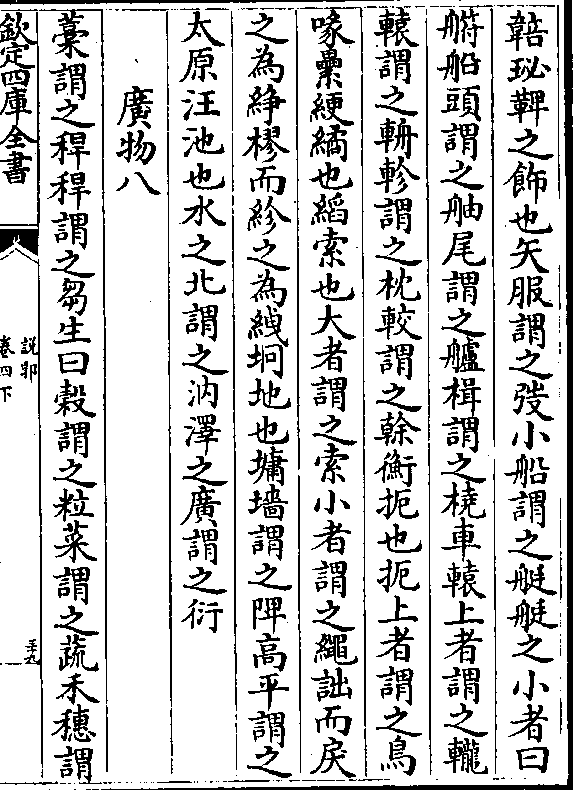 鞛珌鞞之飾也矢服謂之弢小船謂之艇艇之小者曰
艄船頭謂之舳尾謂之艫楫謂之橈車轅上者謂之轆
轅謂之輈軫謂之枕較謂之幹衡扼也扼上者謂之烏
喙纍綆繘也縚索也大者謂之索小者謂之繩詘而戾
之為絣樛而紾之為紲坰地也墉墻謂之陴高平謂之
太原汪池也水之北謂之汭澤之廣謂之衍
廣物八
藁謂之稈稈謂之芻生曰穀謂之粒菜謂之蔬禾穗謂
欽定四庫全書
說郛
卷四下
三九